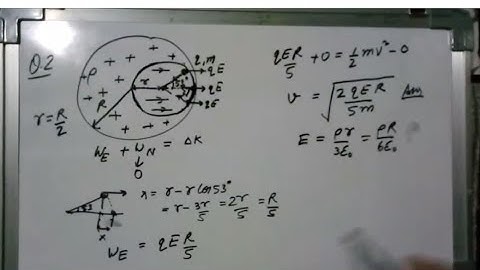 Q.2
ρ
R
r
53°
q, m
qE
qE
qE
r = R/2
W_E + W_N = ΔK
0
53
x
x = r - r cos 53°
= r - 3r/5 = 2r/5 = R/5
W_E = qE R/5
qER/5 + 0 = 1/2 mv² - 0
v = √(2qER/5m) Ans
E = ρr/3ε₀ = ρR/6ε₀